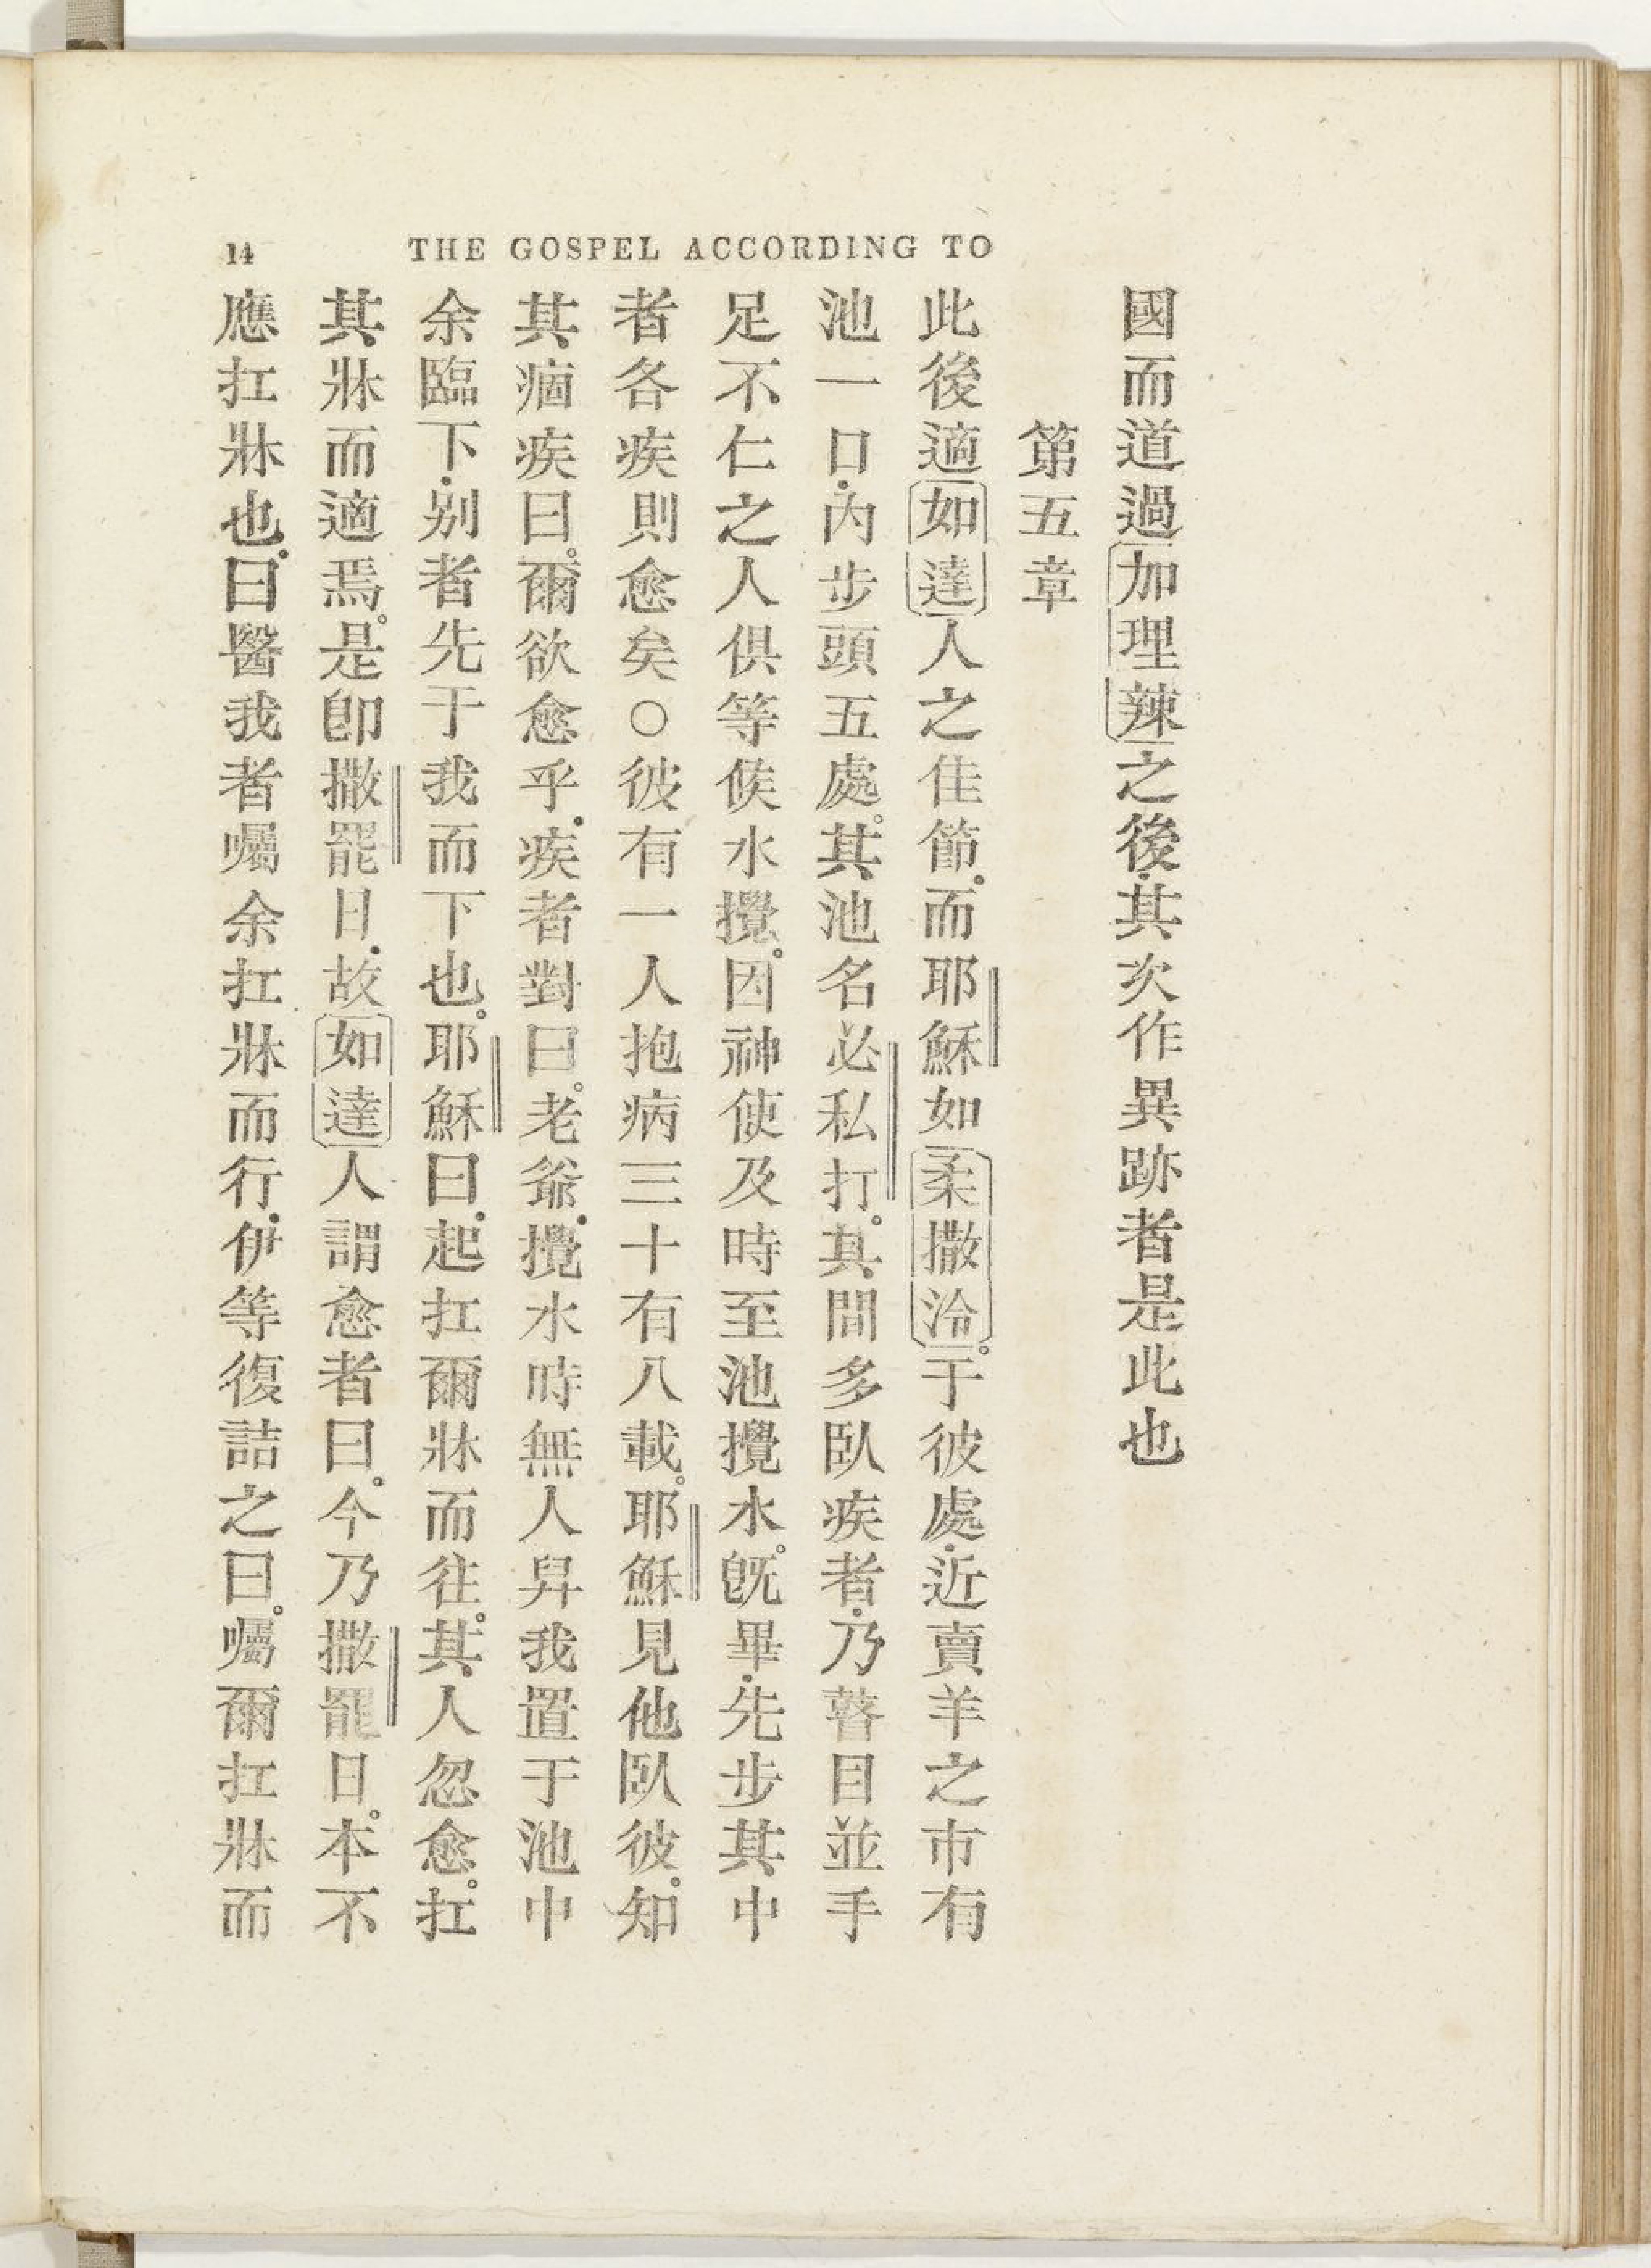 14
THE GOSPEL ACCORDING TO
國而道過加理辣之後．其次作異跡者是此也
第五章
此後適如達人之佳節．而耶穌如柔撒泠。于彼處．近賣羊之市有
池一口．內步頭五處。其池名必私打。其間多臥疾者．乃瞽目並手
足不仁之人俱等候水攪。因神使及時至池攪水。旣畢．先步其中
者各疾則愈矣○彼有一人抱病三十有八載。耶穌見他臥彼。知
其痼疾曰。爾欲愈乎．疾者對曰。老爺．攪水時無人舁我置于池中
余臨下．別者先于我而下也。耶穌曰．起扛爾牀而往。其人忽愈。扛
其牀而適焉。是卽撒罷日．故如達人謂愈者曰。今乃撒罷日。本不
應扛牀也。曰醫我者囑余扛牀而行．伊等復詰之曰。囑爾扛牀而